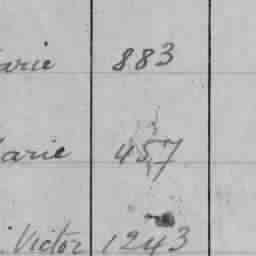 arie 883
arie 457
Victor 1243